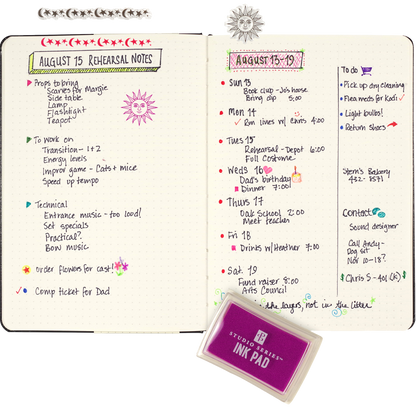 AUGUST 15 REHEARSAL NOTES
Props to bring
Scarves for Margie
Side table
Lamp
Flashlight
Teapot
To Work on
Transition - 1+2
Energy levels
Improv game - Cats + mice
Speed up tempo
Technical
Entrance music - too loud!
Set specials
Practical?
Bow music
order flowers for cast!
Comp ticket for Dad
AUGUST 13-19
Sun 13
Book club - Jo's house
Bring dip 5:00
Mon 14
Run lines w/ Chris 4:00
Tues 15
Rehearsal - Depot 6:00
Full Costume
Weds 16
Dad's birthday
Dinner 7:00
Thurs 17
Oak School 2:00
Meet teacher
Fri 18
Drinks w/Heather 7:00
Sat. 19
Fund raiser 8:00
Arts Council
in the layers, not in the litter
To do
Pick up dry cleaning
Flea meds for Kodi
Light bulbs!
Return Shoes
Stern's Bakery
432-
Contact
Sound designer
Call Andy-
Dog sit
Nov 10-18?
Chris S-
STUDIO SERIES™
INK PAD